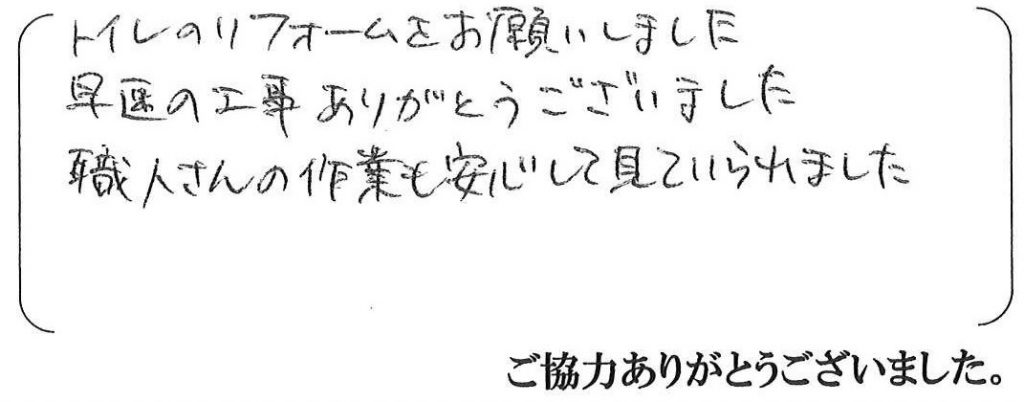 トイレのリフォームをお願いしました
早速の工事ありがとうございました
職人さんの作業も安心して見ていられました
ご協力ありがとうございました。